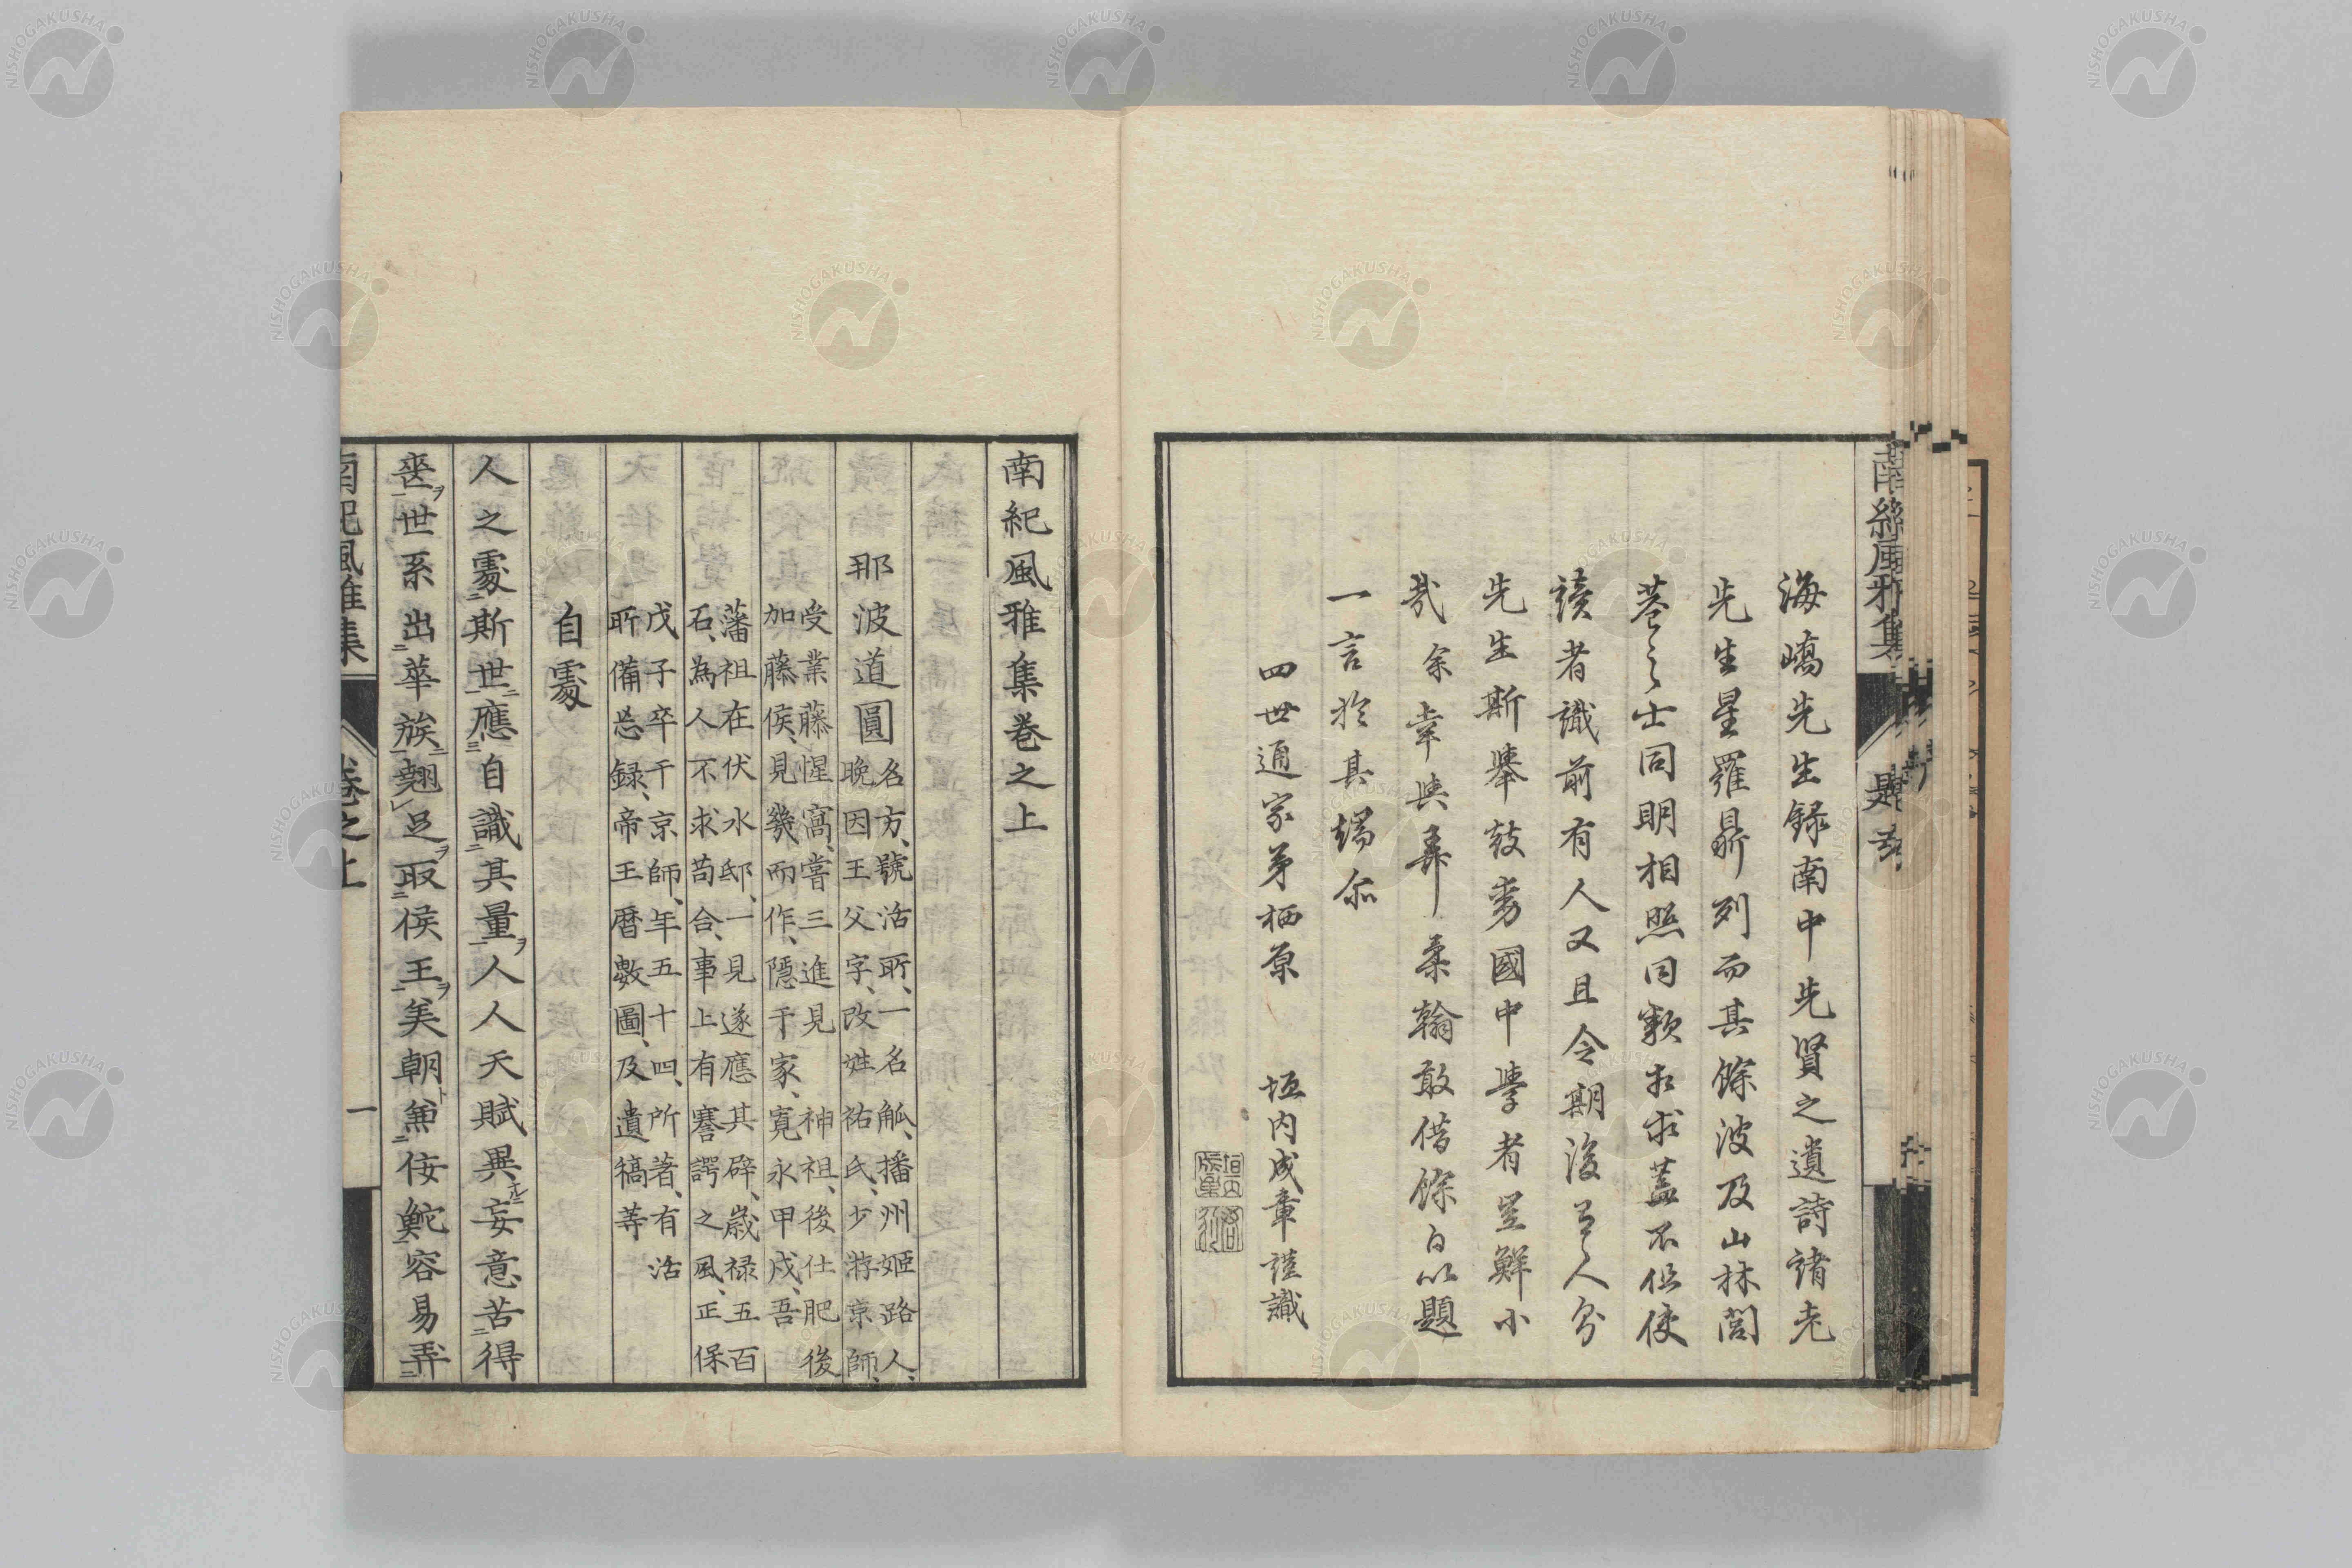 海嶠先生録南中先賢之遺詩諸老
先生星羅鼎列而其餘波及山林閭
巷之士同明相照同類相求蓋不但使
讀者識前有人又且令期後有人
先生斯擧鼓舞國中學者豈鮮小
哉余幸與弄柔翰敢借餘白以題
一言於其端尒
四世通家弟栖原 垣内成章謹識
南紀風雅集巻之上
那波道圓
名方、號活所、一名觚、播州姬路人、
晚因王父字、改姓祐氏、少游京師、
受業藤惺窩、嘗三進見 神祖、後仕肥後
加藤侯、見幾而作、隱于家、寛永甲戌、吾
藩祖在伏水邸、一見遂應其辟、歳禄五百
石、為人不求苟合、事上有謇諤之風、正保
戊子卒于京師、年五十四、所著、有活
所備忘録、帝王暦數圖、及遺稿等
自處
人之處斯世應自識其量人人天賦異妄意苦得
喪世系出華族翹足取侯王美朝兼佞鮀容易弄
南紀風雅集 巻之上 一
NISHOGAKUSHA